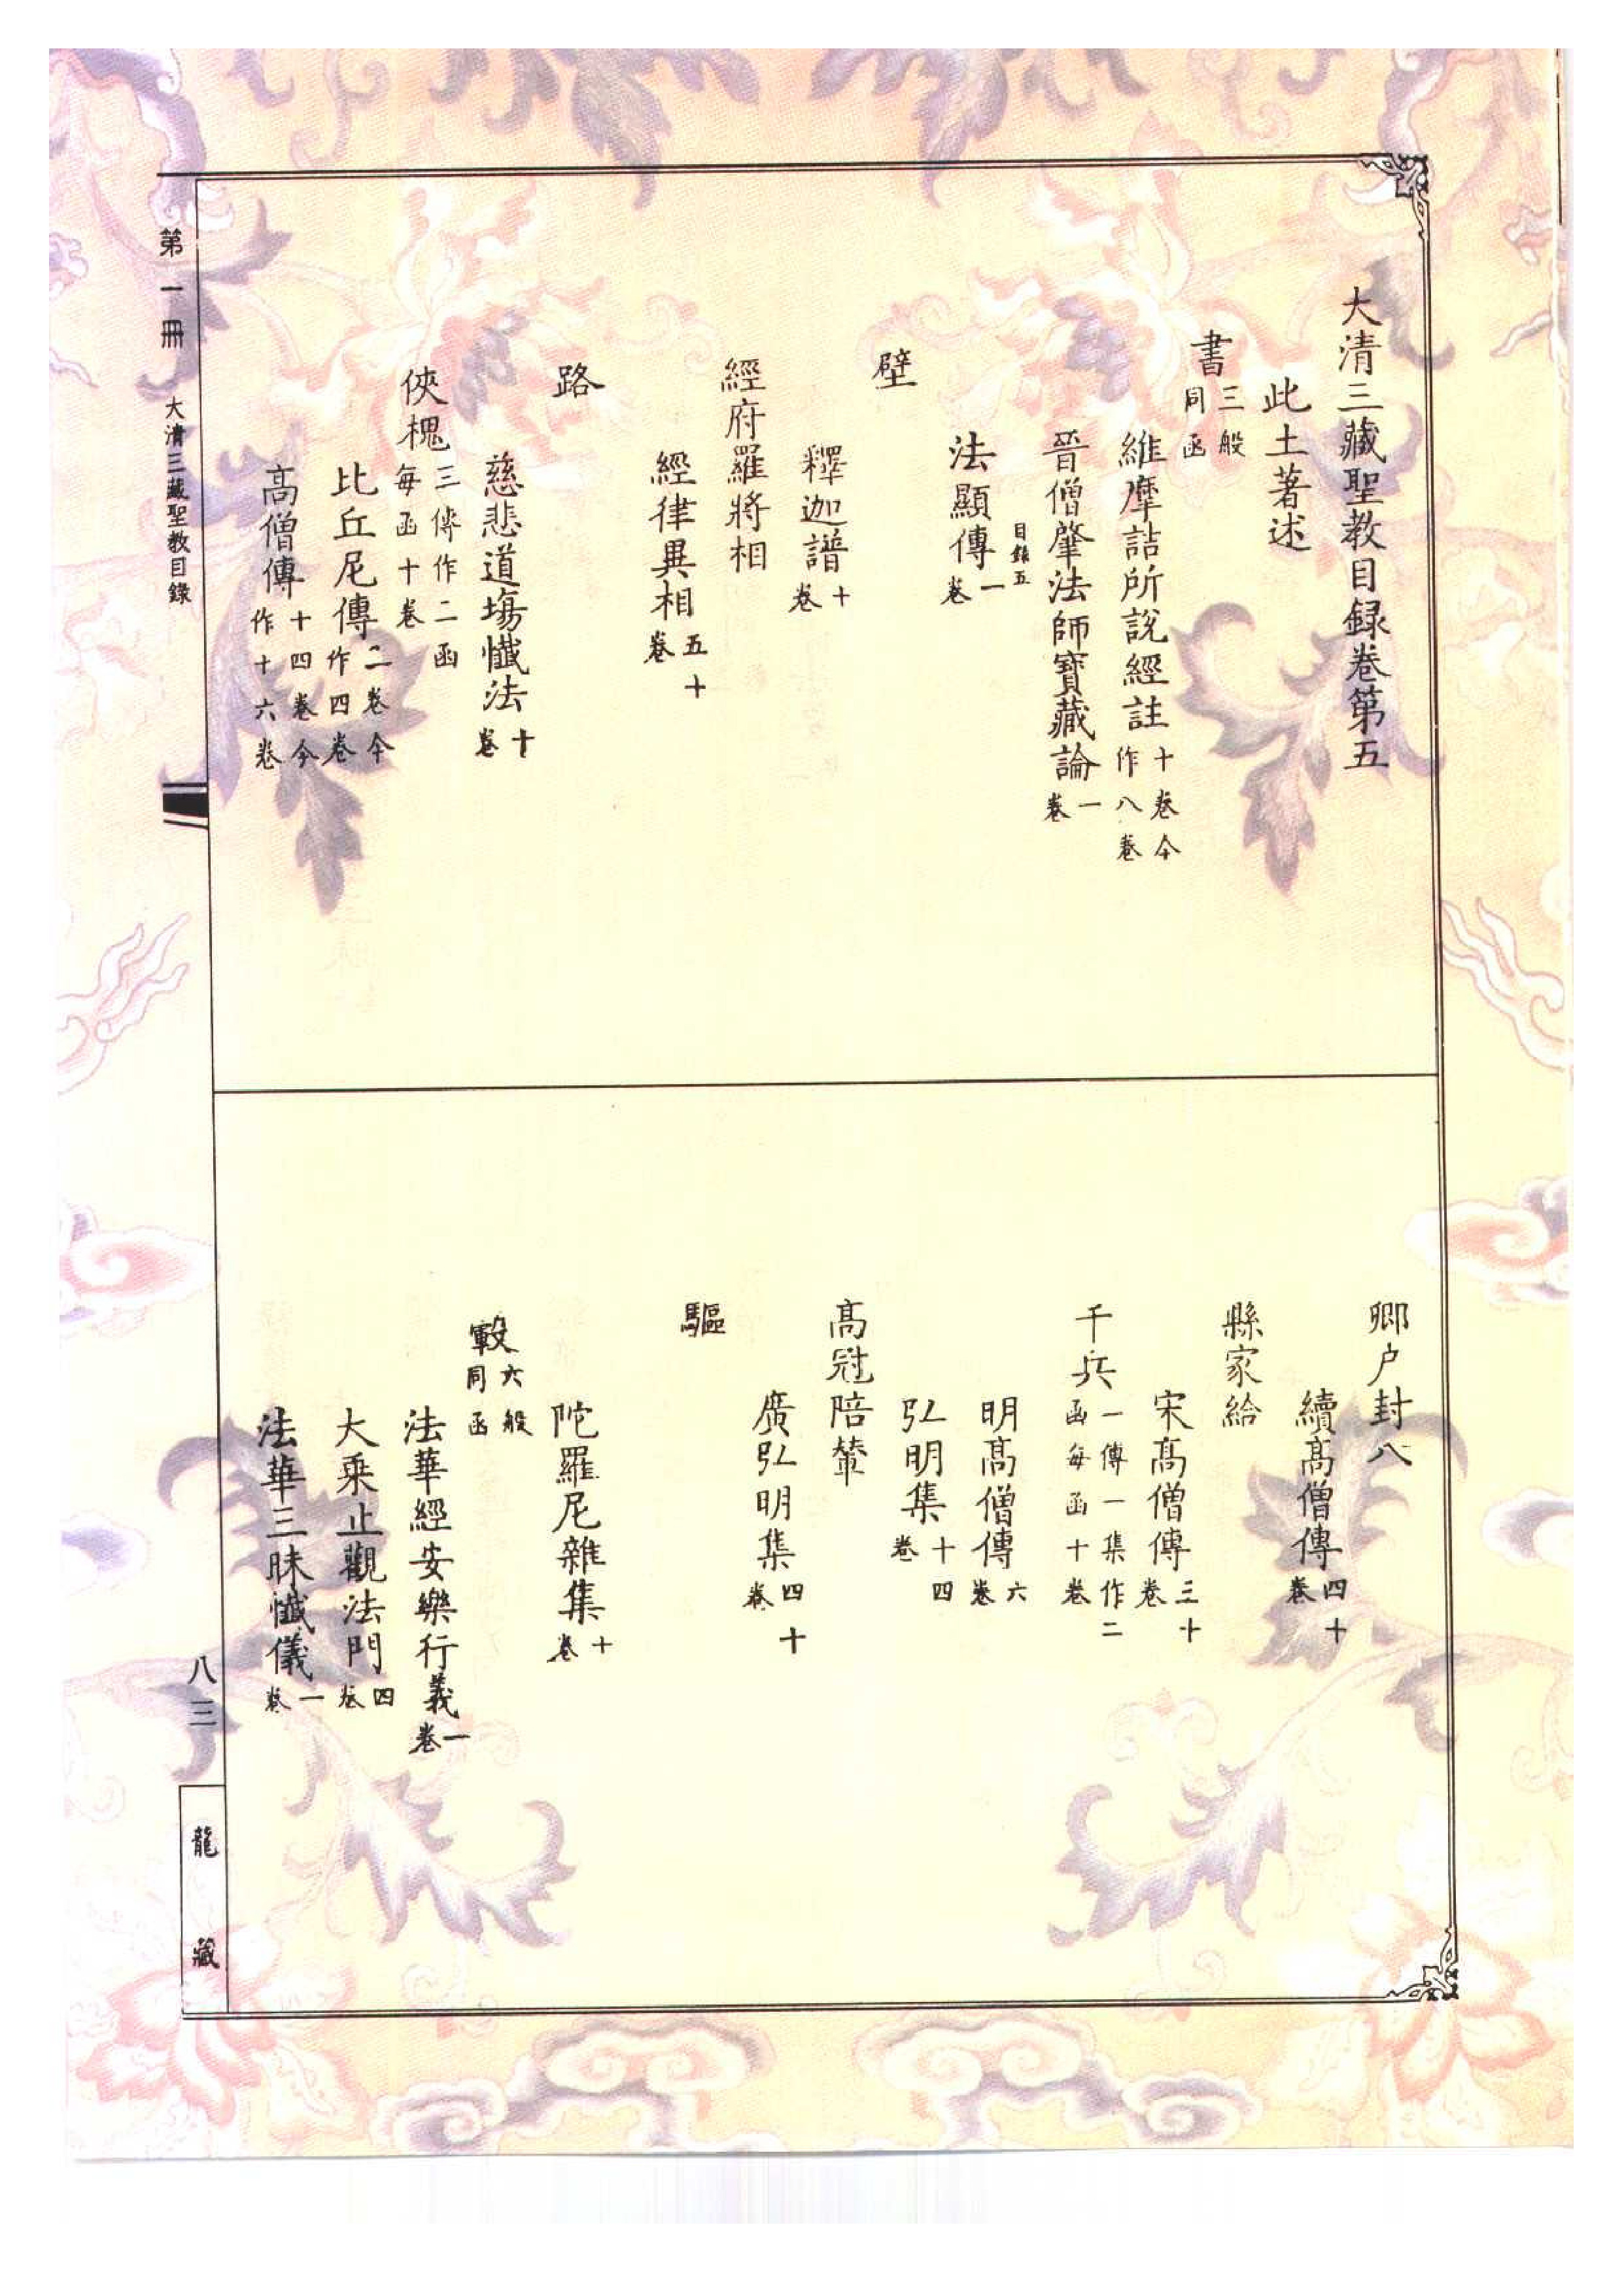 大清三藏聖教目録卷第五
此土著述
書三般同函
維摩詰所說經註十卷今作八卷
晉僧肇法師寶藏論一卷
目錄五
法顯傳一卷
壁
釋迦譜十卷
經府羅將相
經律異相五十卷
路
慈悲道場懺法十卷
俠槐三傳作二函每函十卷
比丘尼傳二卷今作四卷
高僧傳十四卷今作十六卷
卿户封八
續高僧傳四十卷
縣家給
宋高僧傳三十卷
千兵一傳一集作二函每函十卷
明高僧傳六卷
弘明集十四卷
高冠陪輦
廣弘明集四十卷
驅
陀羅尼雜集十卷
轂六般同函
法華經安樂行義一卷
大乘止觀法門四卷
法華三昧懺儀一卷
第一冊
大清三藏聖教目錄
八三
龍藏